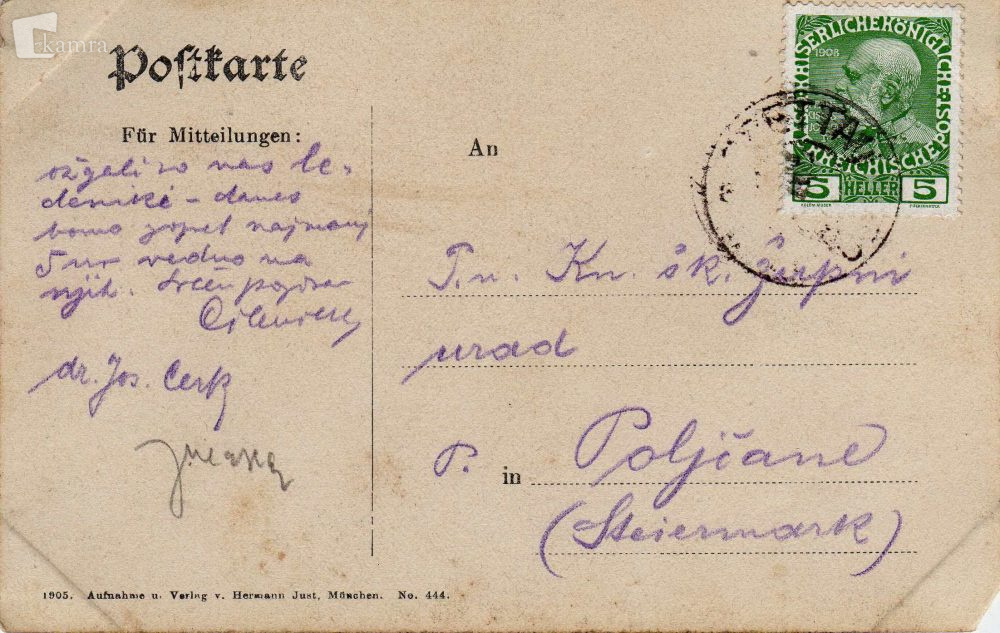 kamra
Postkarte
Für Mitteilungen:
ožgali so nas le-
deniki – danes
bomo zopet najmanj
5 ur vedno na
njih. Srčen pozdrav
dr. Jos. Cerk
An
T. n. Kn. šk. župni
urad
P. in Poljčane
(Steiermark)
KAISERLICHE KÖNIGLICHE
1908
ÖSTERREICHISCHE POST
5 HELLER 5
1905. Aufnahme u. Verlag v. Hermann Just, München. No. 444.